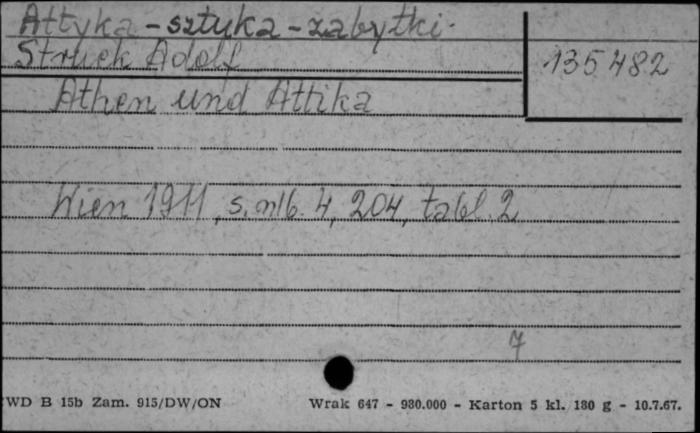 Attyka - sztuka - zabytki.
Struck Adolf
135 482
Athen und Attika
Wien 1911, s. nlb. 4, 204, tabl. 2
7
WD B 15b Zam. 915/DW/ON Wrak 647 - 930.000 - Karton 5 kl. 180 g - 10.7.67.